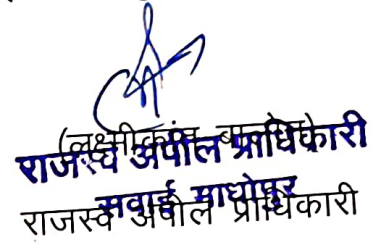 (लक्ष्मीकांत
राजस्व अपील प्राधिकारी
सवाई माधोपुर
राजस्व अपील प्राधिकारी